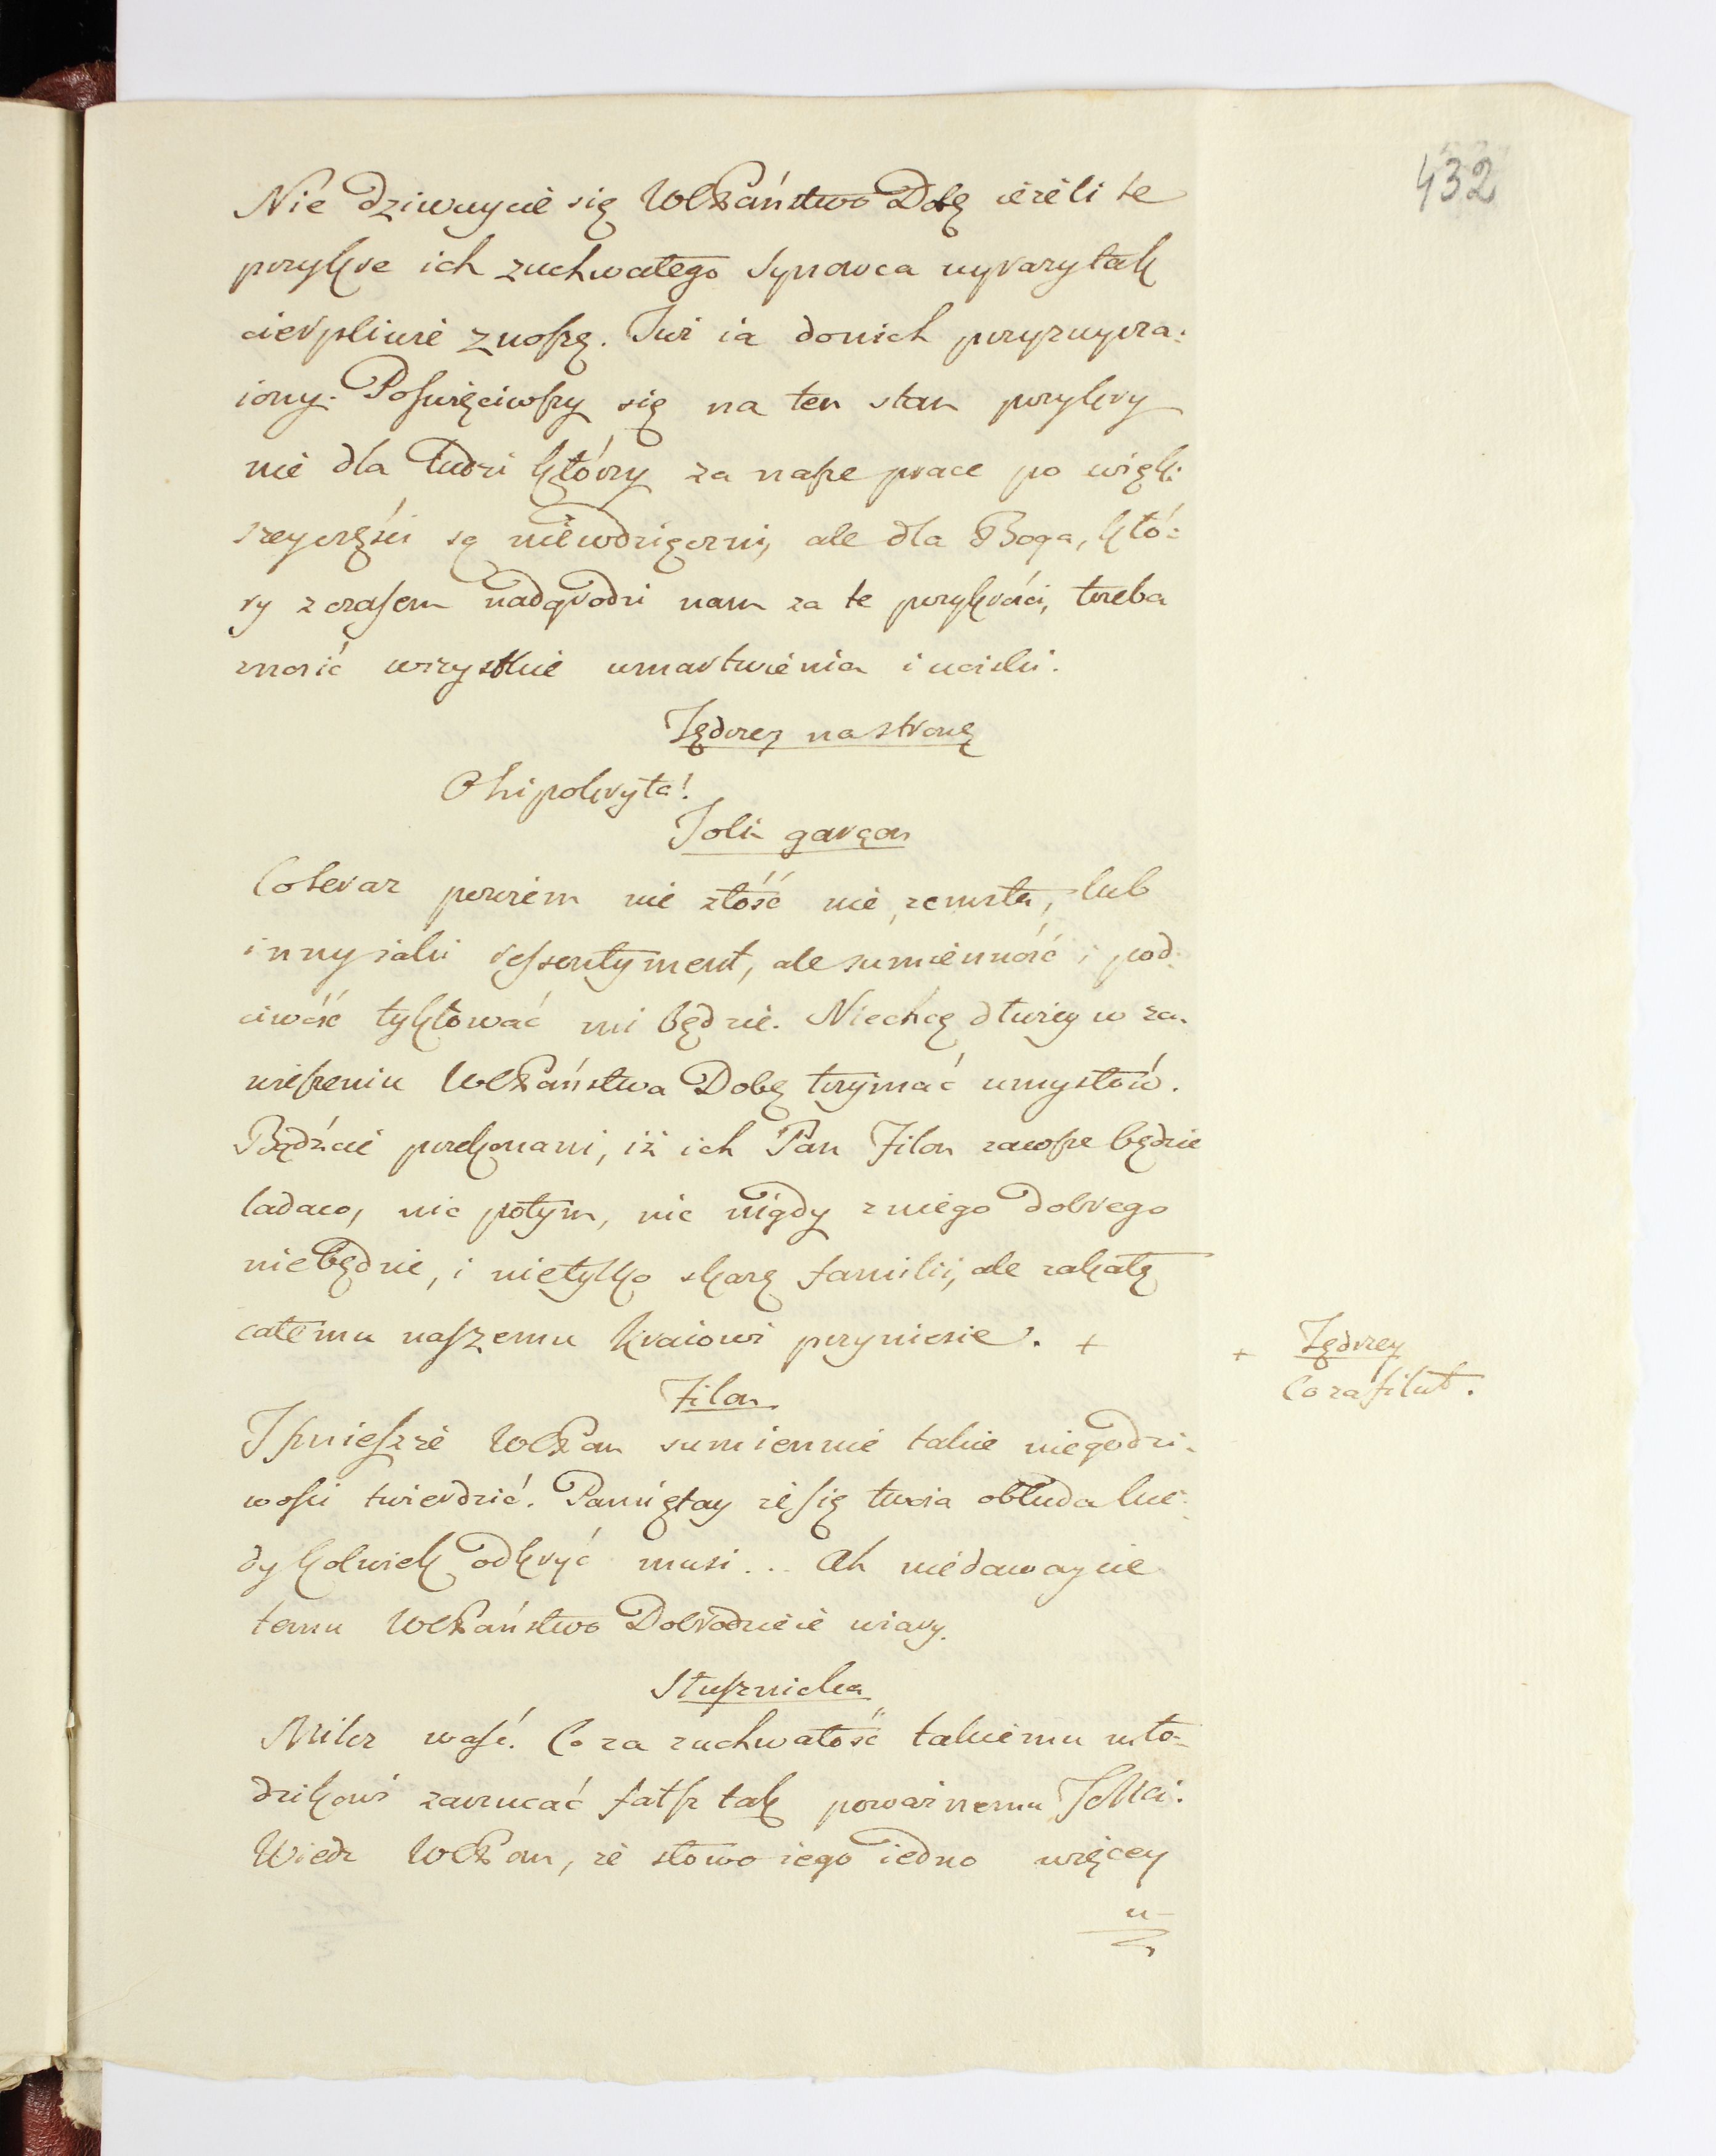 432
Nie dziwuycie się WCPaństwo Dobę ieżeli te
przykre ich zuchwałego Synowca wyrazy tak
cierpliwie znoszę. Już ia do nich przyzwycza:
iony. Poświęciwszy się na ten stan przykry
nie dla ludzi którzy za nasze prace po więk:
szey części są niewdzięczni, ale dla Boga, któ:
ry z czasem nadgrodzi nam za te przykrości, trzeba
znosić wszystkie umartwienia i uciski.
Jędrzey na stronę
O hipokryta!
Joli garçon
Co teraz powiem nie złość nie zemsta, lub
inny iaki ressentyment, ale sumienność i pod:
ciwość tyktować mi będzie. Niechcę dłużey w za:
wieszeniu WCPaństwa Dobę trzymać umysłów.
Bądźcie przekonani, iż ich Pan Filon zawsze będzie
ladaco, nic potym, nic nigdy z niego dobrego
niebędzie, i nietylko skazę familii, ale zakałę
całemu naszemu kraiowi przyniesie. +
+ Jędrzey
Co za filut.
Filon
I śmieszże WCPan sumiennie takie niegodzi:
wości twierdzić. Pamiętay że się twoia obłuda kie:
dykolwiek odkryć musi... Ah niedawaycie
temu WCPaństwo Dobrodzieie wiary.
Słusznicka
Milcz waść. Co za zuchwałość takiemu mło:
dzikowi zarzucać fałsz tak poważnemu JCMci.
Wiedz WCPan, że słowo iego iedno więcey
u